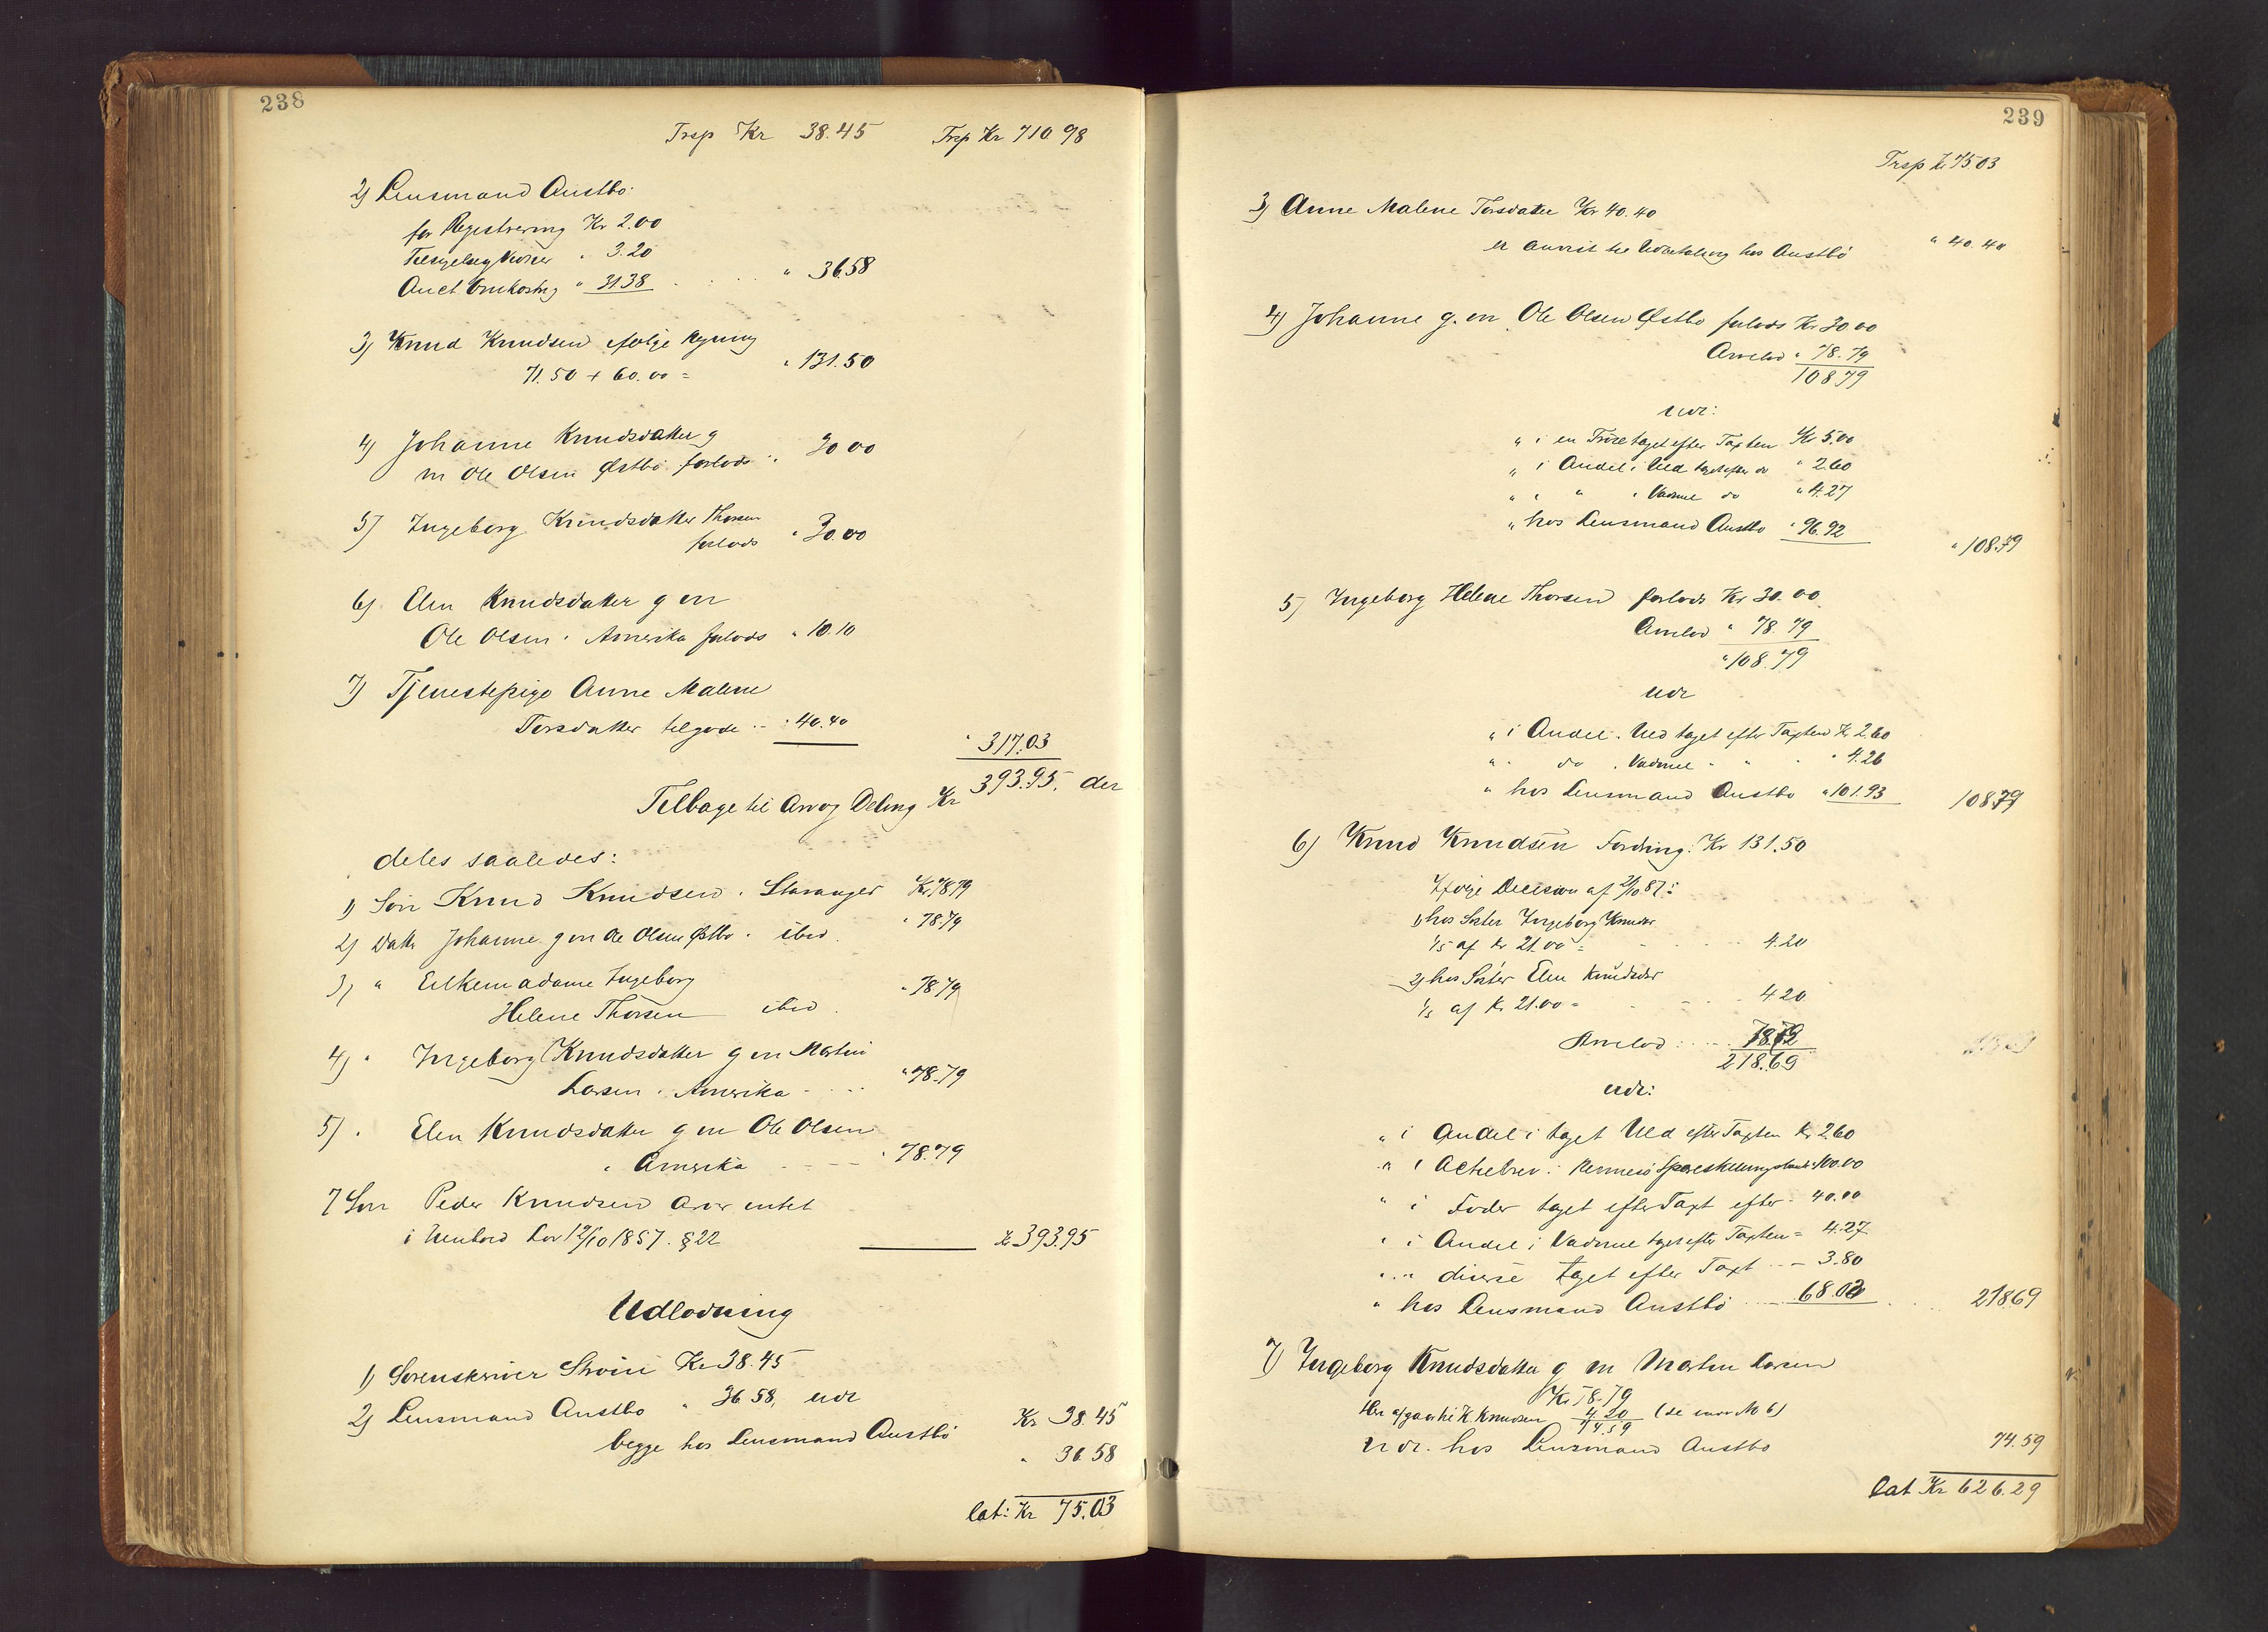 238
Trsp Kr 38.45 Trsp Kr 710 98
2) Lensmand Austbø:
for Registrering Kr 2.00
" 3.20
Auct Omkostng " 31.38 " 36.58
3) Knud Knudsen ifølge Regning
71.50 + 60.00 = " 131.50
4) Johanne Knudsdatter g
m Ole Olsen Østbø forlods " 30 00
5) Ingeborg Knudsdatter Thorsen
forlods " 30.00
6) Elen Knudsdatter g m
Ole Olsen i Amerika forlods " 10.10
7) Tjenestepige Anne Malene
Torsdatter tilgode " 40.40
" 317.03
Tilbage til Arv og Deling Kr 393.95. der
deles saaledes:
1) Søn Knud Knudsen i Stavanger Kr 78.79
2) Datt Johanne g m Ole Olsen Østbø i ibid. " 78.79
3) " Enkemadame Ingeborg
Helene Thorsen ibid. " 78.79
4) " Ingeborg Knudsdatter g m Martin
Larsen i Amerika " 78.79
5) " Elen Knudsdatter g m Ole Olsen
i Amerika " 78.79
7 Søn Peder Knudsen arver intet
i Lov 12/10 1857. § 22 Kr 393.95
Udlodning
1) Sorenskriver Kr 38.45
2) Lensmand Austbø " 36 58, udl
begge hos Lensmand Austbø Kr 38.45
" 36.58
lat: Kr 75.03
239
Trsp Kr 75.03
3) Anne Malene Torsdatter Kr 40.40
er anvist til Udbetaling hos Austbø " 40.40
4) Johanne g. m Ole Olsen Østbø forlods Kr 30 00
Arvelod " 78.79
108.79
udl:
" i en Trøie taget efter Taxten Kr 5.00
" i Andel i Uld taget efter do " 2.60
" " " i Vadmel do " 4.27
" hos Lensmand Austbø " 96.92
" 108.79
5) Ingeborg Helene Thorsen forlods Kr 30.00
Arvelod " 78.79
" 108.79
udl
" i Andel i Uld taget efter Taxten Kr 2.60
" " do i Vadmel " " " 4.26
" hos Lensmand Austbø " 101.93 108.79
6) Knud Knudsen Fordring: Kr 131.50
Ifølge Decision af 87:
1) hos Søster Ingeborg Knudsdr
1/5 af Kr 21.00 = 4.20
2) hos Søster Elen Knudsdr
1/5 af Kr 21.00 = 4 20
Arvelod 78.79
218.69
udl:
" i Andel i taget Uld efter Taxten Kr 2.60
" i Actiebrev i Rennesø 100.00
" i Foder taget efter Taxt efter 40.00
" i Andel i Vadmel taget efter Taxten = 4.27
" " diverse taget efter Taxt 3.80
" hos Lensmand Austbø 68.02 218.69
7) Ingeborg Knudsdatter g m Martin Larsen
Kr 78.79
Her afgaar til K. Knudsen 4.20 (se ovor № 6)
74.59
udl. hos Lensmand Austbø 74.59
Lat Kr 626.29